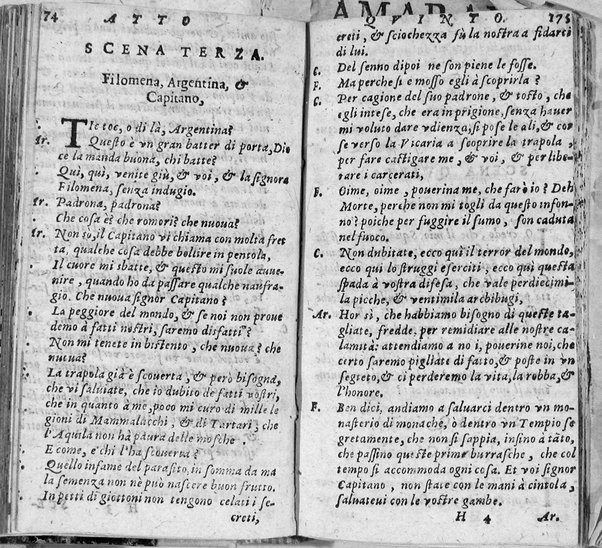 AMARA
74 ATTO
SCENA TERZA.
Filomena, Argentina, &
Capitano,
TIc toc, o di là, Argentina?
Ar. Questo è vn gran batter di porta, Dio
ce la manda buona, chi batte?
Qui, quì, venite giù, & voi, & la signora
Filomena, senza indugio.
Ar. Padrona, padrona?
Che cosa è? che romori? che nuoua?
Ar. Non sò, il Capitano vi chiama con molta fret
ta, qualche cosa debbe bollire in pentola,
Il cuore mi sbatte, & questo mi suole auue-
nire, quando ho da passare qualche naufra-
gio. Che nuoua signor Capitano?
La peggiore del mondo, & se noi non proue
demo à fatti nostri, saremo disfatti?
Non mi tenete in bistento, che nuoua? che
nuoua?
La trapola già è scouerta, & però bisogna,
che vi saluiate, che io dubito de fatti vostri,
che in quanto à me, poco mi curo di mille le
gioni di Mammalacchi, & di Tartari; che
l'Aquila non hà paura delle mosche.
E come, e chi l'ha scouerta?
Quello infame del parasito, in somma da ma
la semenza non nè può nascere buon frutto.
In petti di giottoni non tengono celati i se-
creti,
QVINTO. 175
creti, & sciochezza fù la nostra a fidarci
di lui.
C. Del senno dipoi ne son piene le fosse.
F. Ma perche si è mosso egli à scoprirla?
C. Per cagione del suo padrone, & tosto, che
egli intese, che era in prigione, senza hauer
mi voluto dare vdienza, si pose le ali, & cor
se verso la Vicaria a scoprire la trapola,
per fare castigare me, & voi, & per libe-
rare i carcerati,
F. Oime, oime, pouerina me, che farò io? Deh
Morte, perche non mi togli da questo infor-
no? poiche per fuggire il fumo, son caduta
nel fuoco.
C. Non dubitate, ecco qui il terror del mondo,
ecco qui lo struggi eserciti, ecco qui questa
spada à vostra difesa, che vale perdiecimi-
la picche, & ventimila archibugi,
Ar. Hor sì, che habbiamo bisogno di queste ta-
gliate, fredde, per remidiare alle nostre ca-
lamità: attendiamo a no i, pouerine noi, che
certo saremo pigliate di fatto, & poste in vn
segreto, & ci perderemo la vita, la robba, &
l'honore.
F. Ben dici, andiamo a saluarci dentro vn mo-
nasterio di monache, ò dentro vn Tempio se
gretamente, che non si sappia, insino à tãto,
che passino queste prime burrasche, che col
tempo si accommoda ogni cosa. Et voi signor
Capitano, non state con le mani à cintola,
saluateui con le vostre gambe.
H 4 Ar.